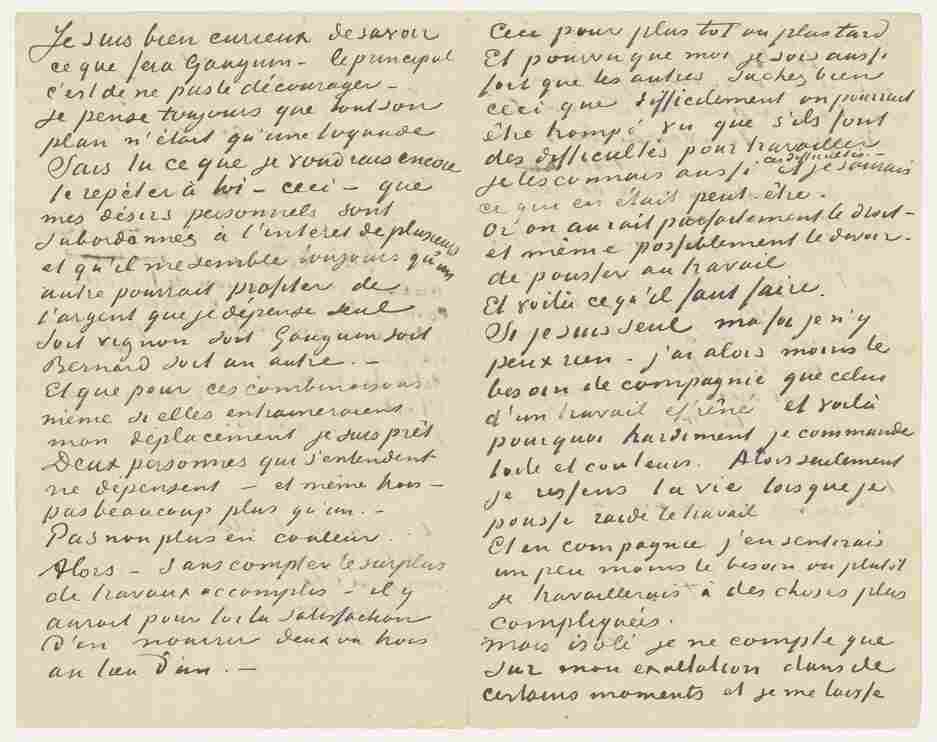 Je suis bien curieux de savoir
ce que fera Gauguin – le principal
c'est de ne pas le décourager –
je pense toujours que tout son
plan n'était qu'une toquade
Sais tu ce que je voudrais encore
te repéter à toi – ceci – que
mes désirs personnels sont
subordonnés à l'intérêt de plusieurs
et qu'il me semble toujours qu'un
autre pourrait profiter de
l'argent que je dépense seul
soit Vignon soit Gauguin soit
Bernard soit un autre. –
Et que pour ces combinaisons
même si elles entraineraient
mon déplacement je suis prêt
Deux personnes qui s'entendent
ne dépensent – et même trois –
pas beaucoup plus qu'un. –
Pas non plus en couleur.
Alors – sans compter le surplus
de travaux accomplis – il y
aurait pour toi la satisfaction
d'en nourrir deux ou trois
au lieu d'un. –
Ceci pour plus tot ou plus tard
Et pourvu que moi je sois aussi
fort que les autres sachez bien
ceci que difficilement on pourrait
être trompé vu que s'ils font
des difficultés pour travailler
je les connais aussi ces difficultés – et je saurais
ce que en était peut-être.
Or on aurait parfaitement le droit –
et même possiblement le devoir –
de pousser au travail
Et voilà ce qu'il faut faire.
Si je suis seul ma foi je n'y
peux rien – j'ai alors moins le
besoin de compagnie que celui
d'un travail effrêné et voilà
pourquoi hardiment je commande
toile et couleurs. Alors seulement
je ressens la vie lorsque je
pousse raide le travail
Et en compagnie j'en sentirais
un peu moins le besoin ou plutôt
je travaillerais à des choses plus
compliquées.
mais isolé je ne compte que
sur mon exaltation dans de
certains moments et je me laisse